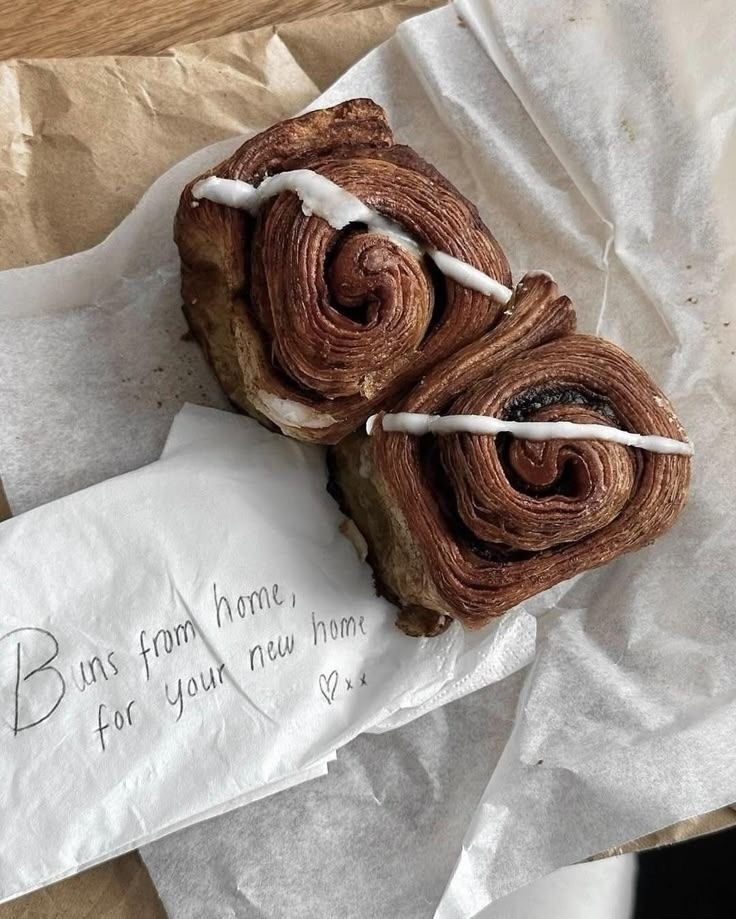 Buns from home,
for your new home
♡xx